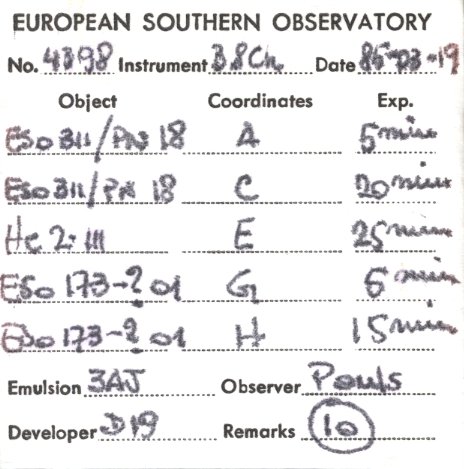 EUROPEAN SOUTHERN OBSERVATORY
No. 4398 Instrument 3.8Ch. Date 85-03-19
Object Coordinates Exp.
ESO 311/PN 18 A 5 min
ESO 311/PN 18 C 20 min
He 2-111 E 25 min
ESO 173-? 01 G 5 min
ESO 173-? 01 H 15 min
Emulsion 3AJ Observer Pouls
Developer D19 Remarks 10